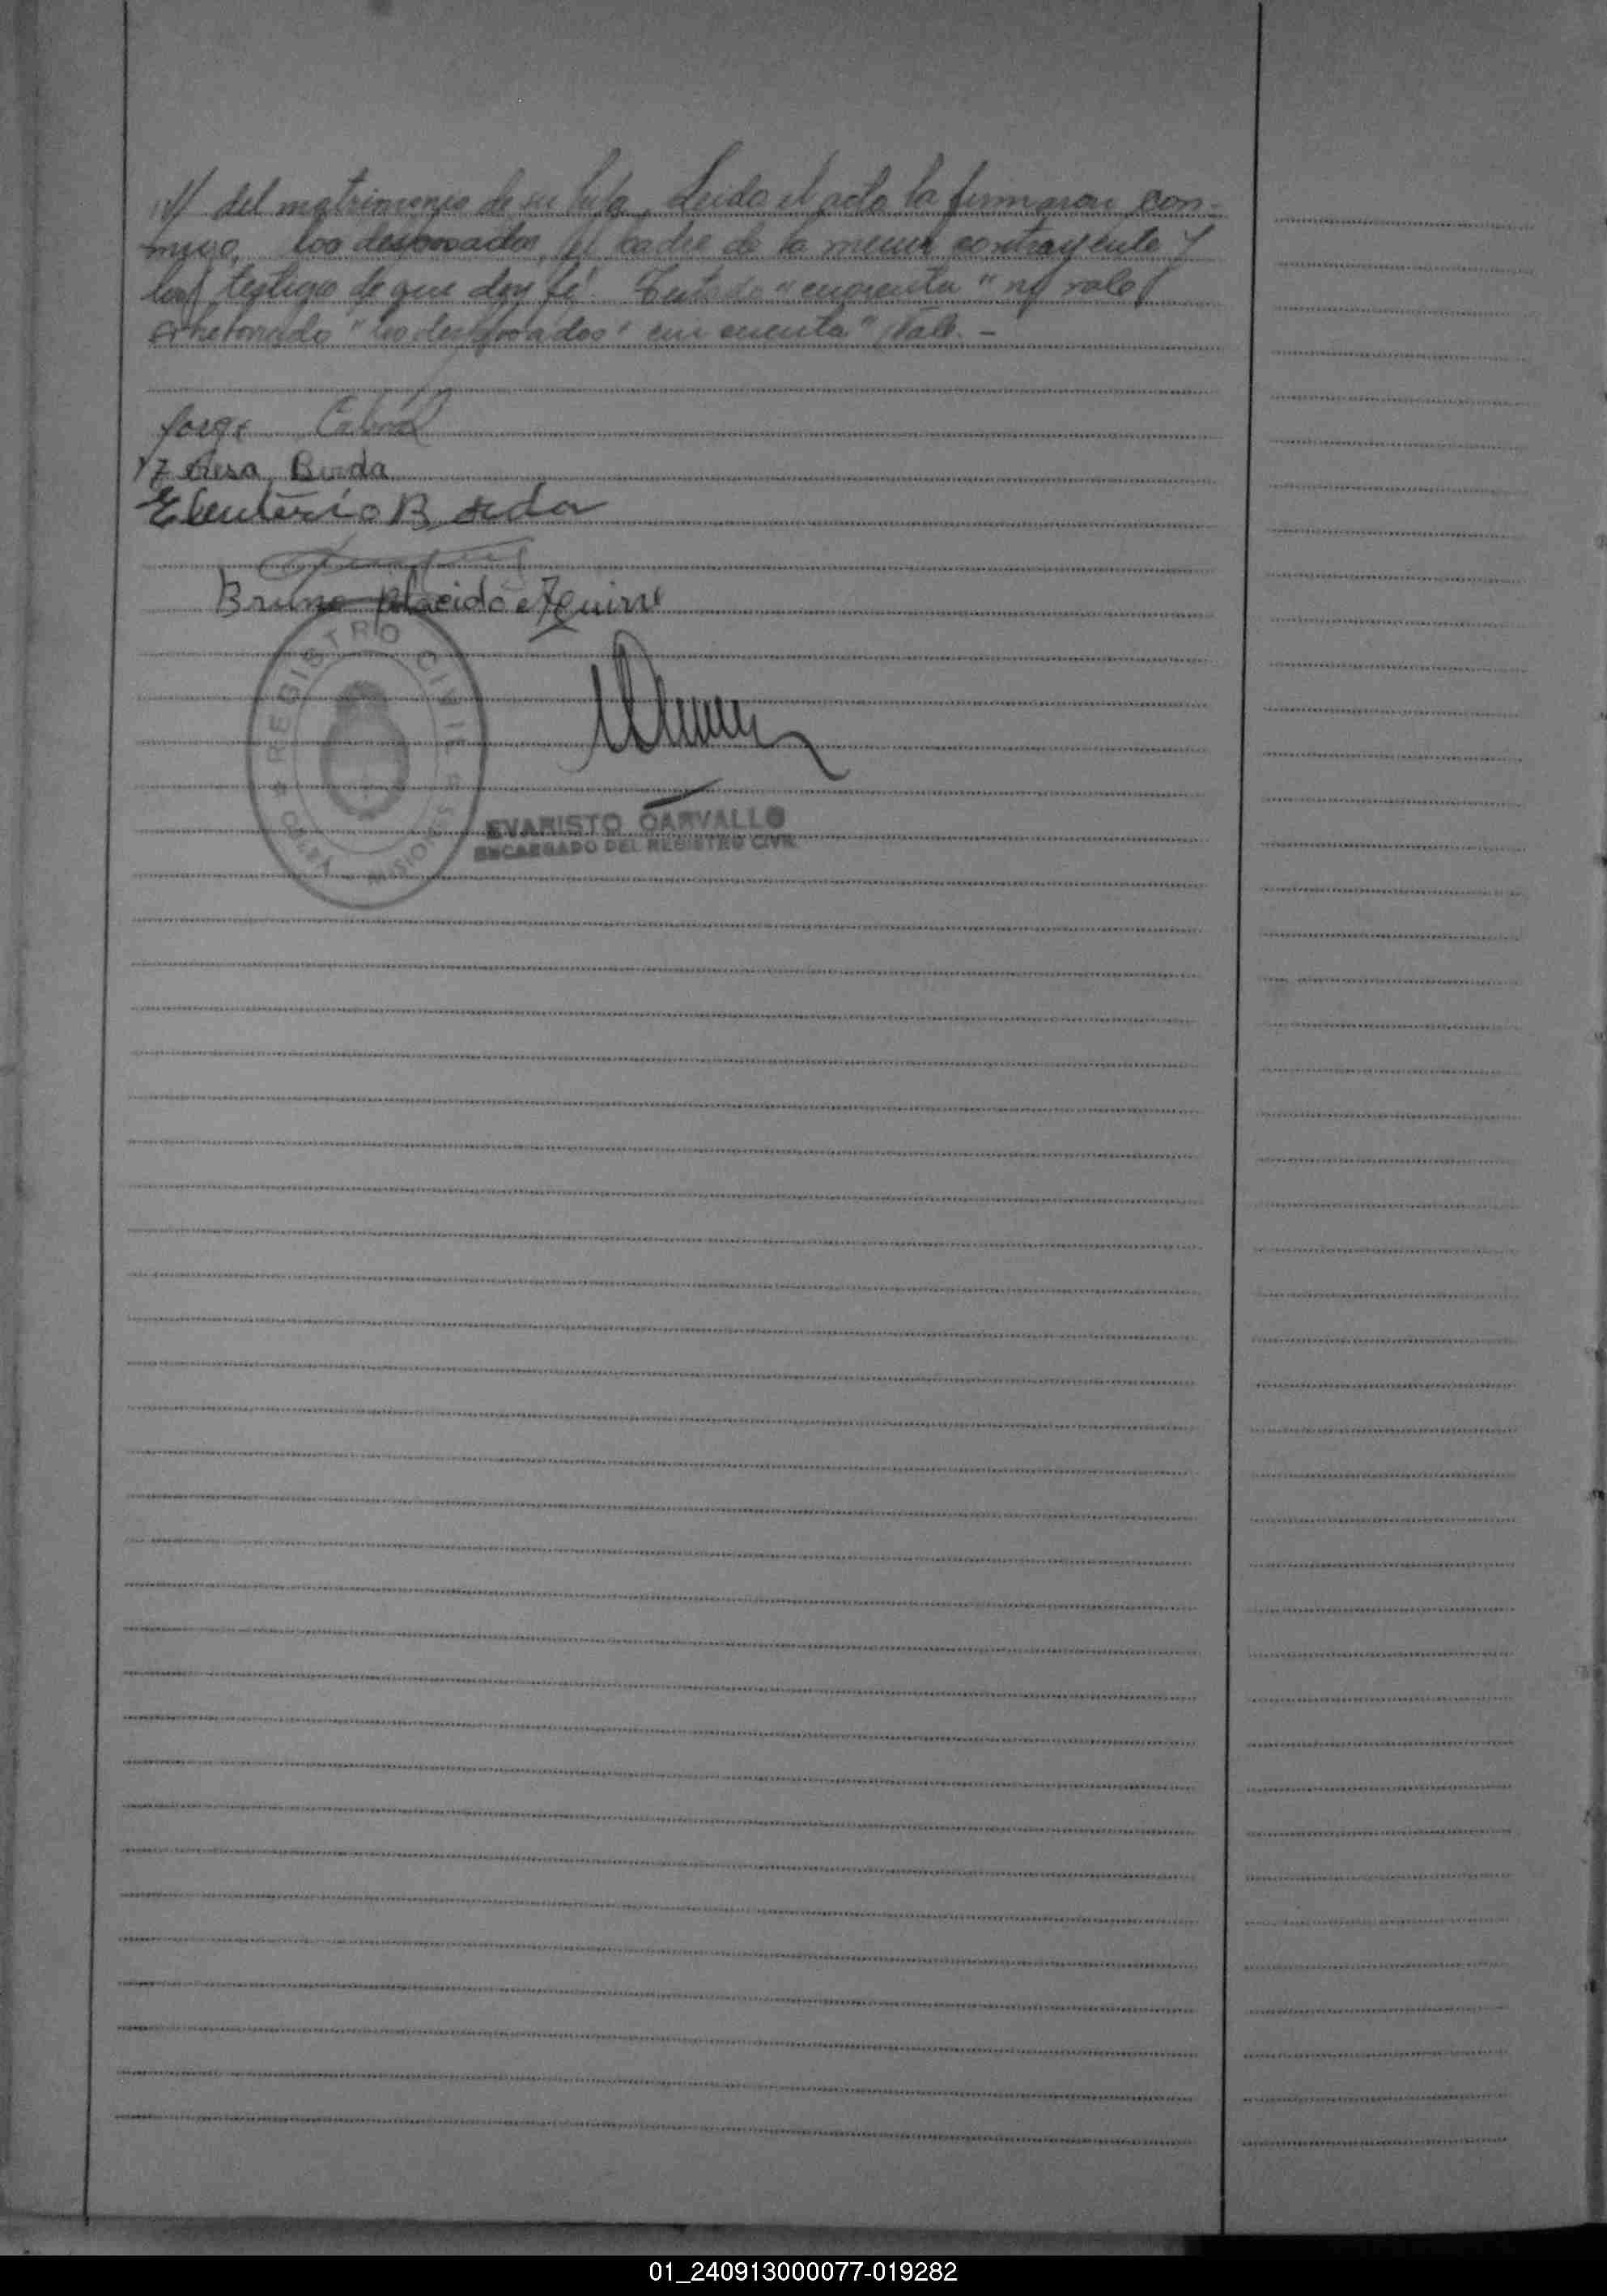 del matrimonio de su hija. Leida el acta la firmaron con-
migo, los desposados, el padre de la menor contrayente y
los testigos de que doy fé. Testado "cuarenta" no vale
entrelineado "los desposados" "cincuenta" Vale. -
Jorge Cabral
Teresa Borda
Eleuterio Borda
Bruno Placido Aguirre
REGISTRO CIVIL
MISIONES
EVARISTO CARVALLO
ENCARGADO DEL REGISTRO CIVIL
01_240913000077-019282